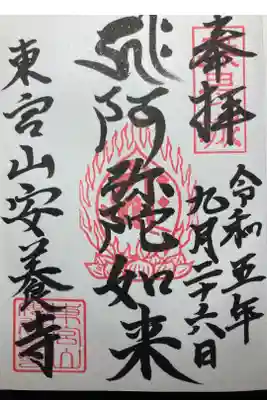 奉拝
令和五年
九月二十六日
阿弥陀如来
東宮山安養寺